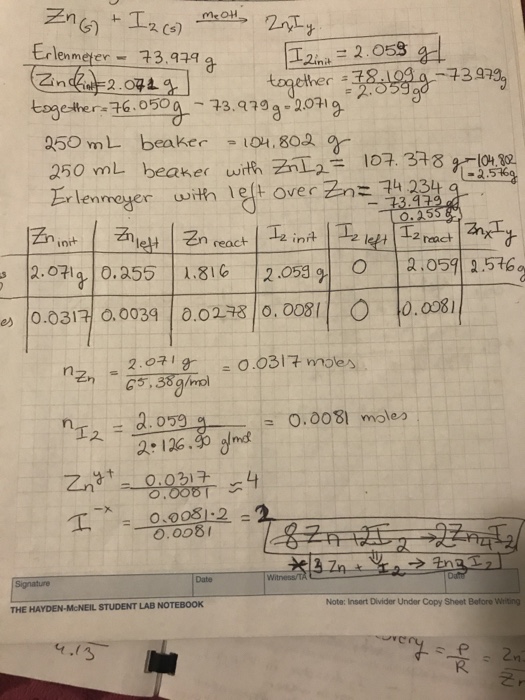 Zn(s) + I2(s) MeOH→ ZnxIy
Erlenmeyer = 73.979 g
I2init = 2.059 g
Zinc(Zinit)=2.071 g
together = 78.109g - 73.979g
= 2.059g
together = 76.050g - 73.979g = 2.071g
250 mL beaker = 104.802 g
250 mL beaker with ZnI2 = 107.378 g - 104.802
= 2.576g
Erlenmeyer with left over Zn = 74.234 g
- 73.979 g
0.255 g
Zn init | Zn left | Zn react | I2 init | I2 left | I2 react | ZnxIy
2.071g | 0.255 | 1.816 | 2.059 g | 0 | 2.059 | 2.576g
es 0.0317 | 0.0039 | 0.0278 | 0.0081 | 0 | 0.0081
nZn = 2.071 g / 65.38g/mol = 0.0317 moles
nI2 = 2.059 g / 2·126.90 g/mol = 0.0081 moles
Zn^y+ = 0.0317 / 0.0081 ≈ 4
I^-x = 0.0081·2 / 0.0081 = 2
8Zn + 2I2 → 2Zn4I2
⇓
* 3 Zn + I2 → Zn3I2
Signature Date Witness/TA Date
THE HAYDEN-McNEIL STUDENT LAB NOTEBOOK Note: Insert Divider Under Copy Sheet Before Writing
4.13
very = P/R =